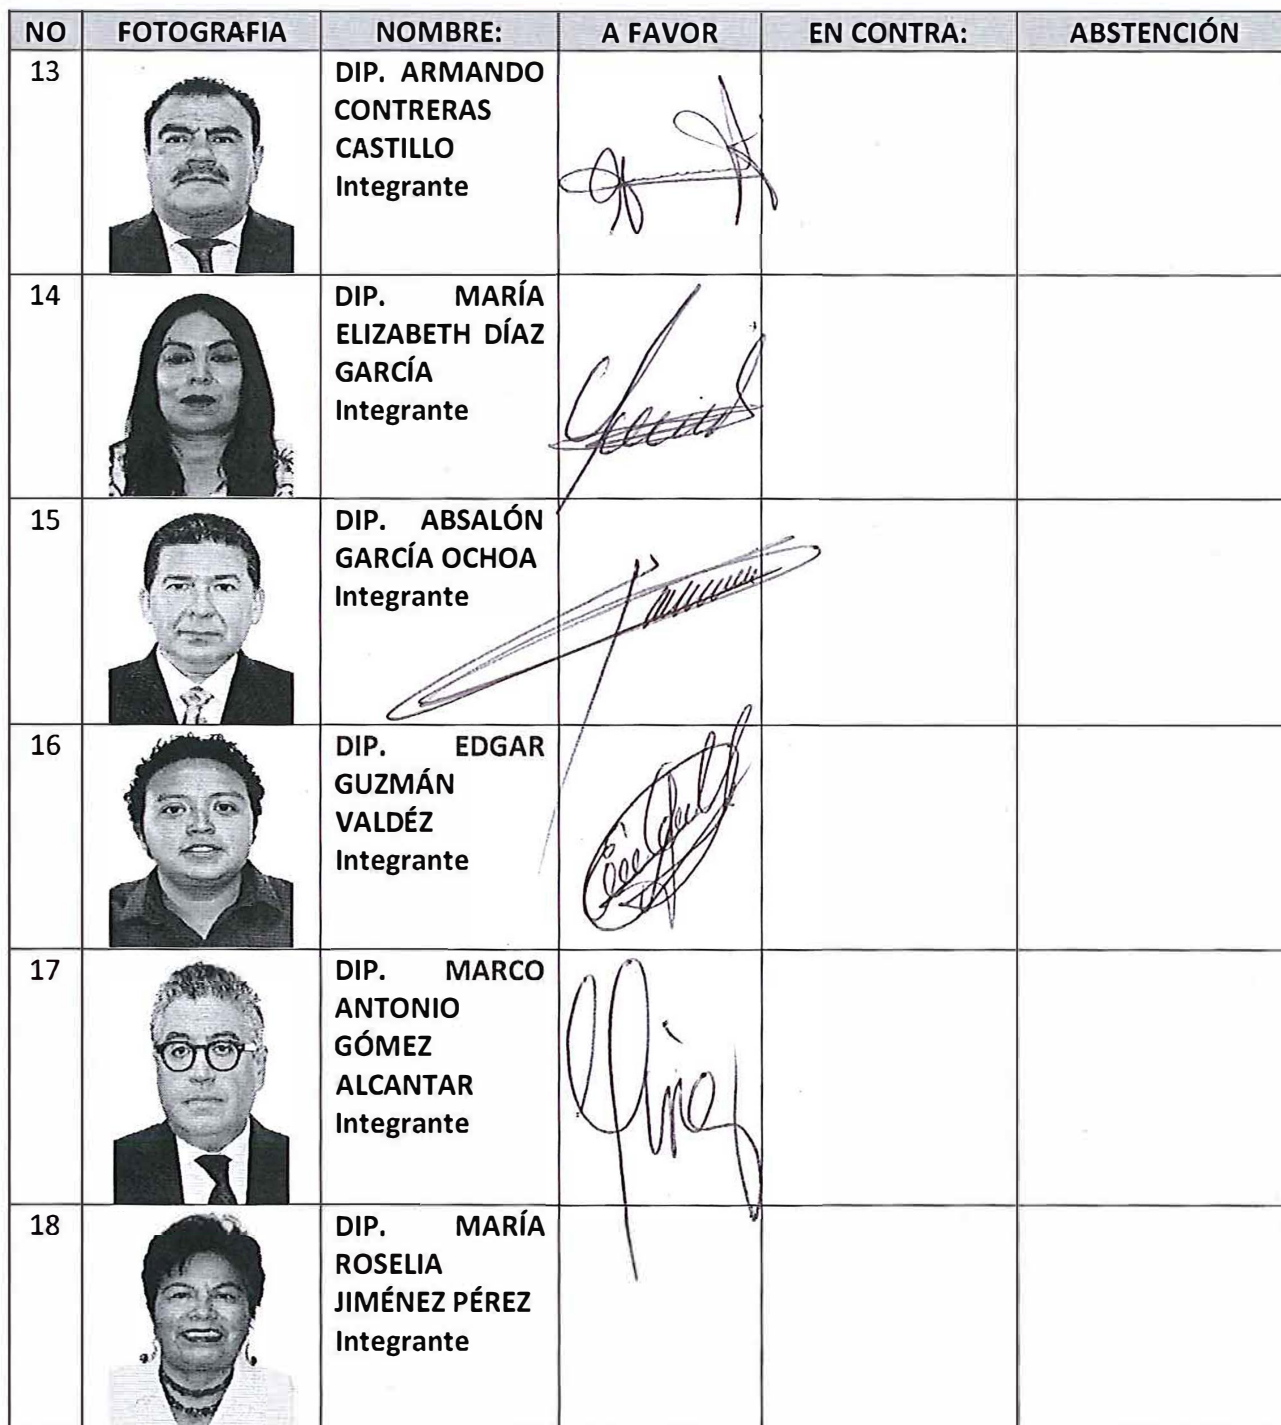 NO FOTOGRAFIA NOMBRE: A FAVOR EN CONTRA: ABSTENCIÓN
13 DIP. ARMANDO
CONTRERAS
CASTILLO
Integrante
14 DIP. MARÍA
ELIZABETH DÍAZ
GARCÍA
Integrante
15 DIP. ABSALÓN
GARCÍA OCHOA
Integrante
16 DIP. EDGAR
GUZMÁN
VALDÉZ
Integrante
17 DIP. MARCO
ANTONIO
GÓMEZ
ALCANTAR
Integrante
18 DIP. MARÍA
ROSELIA
JIMÉNEZ PÉREZ
Integrante